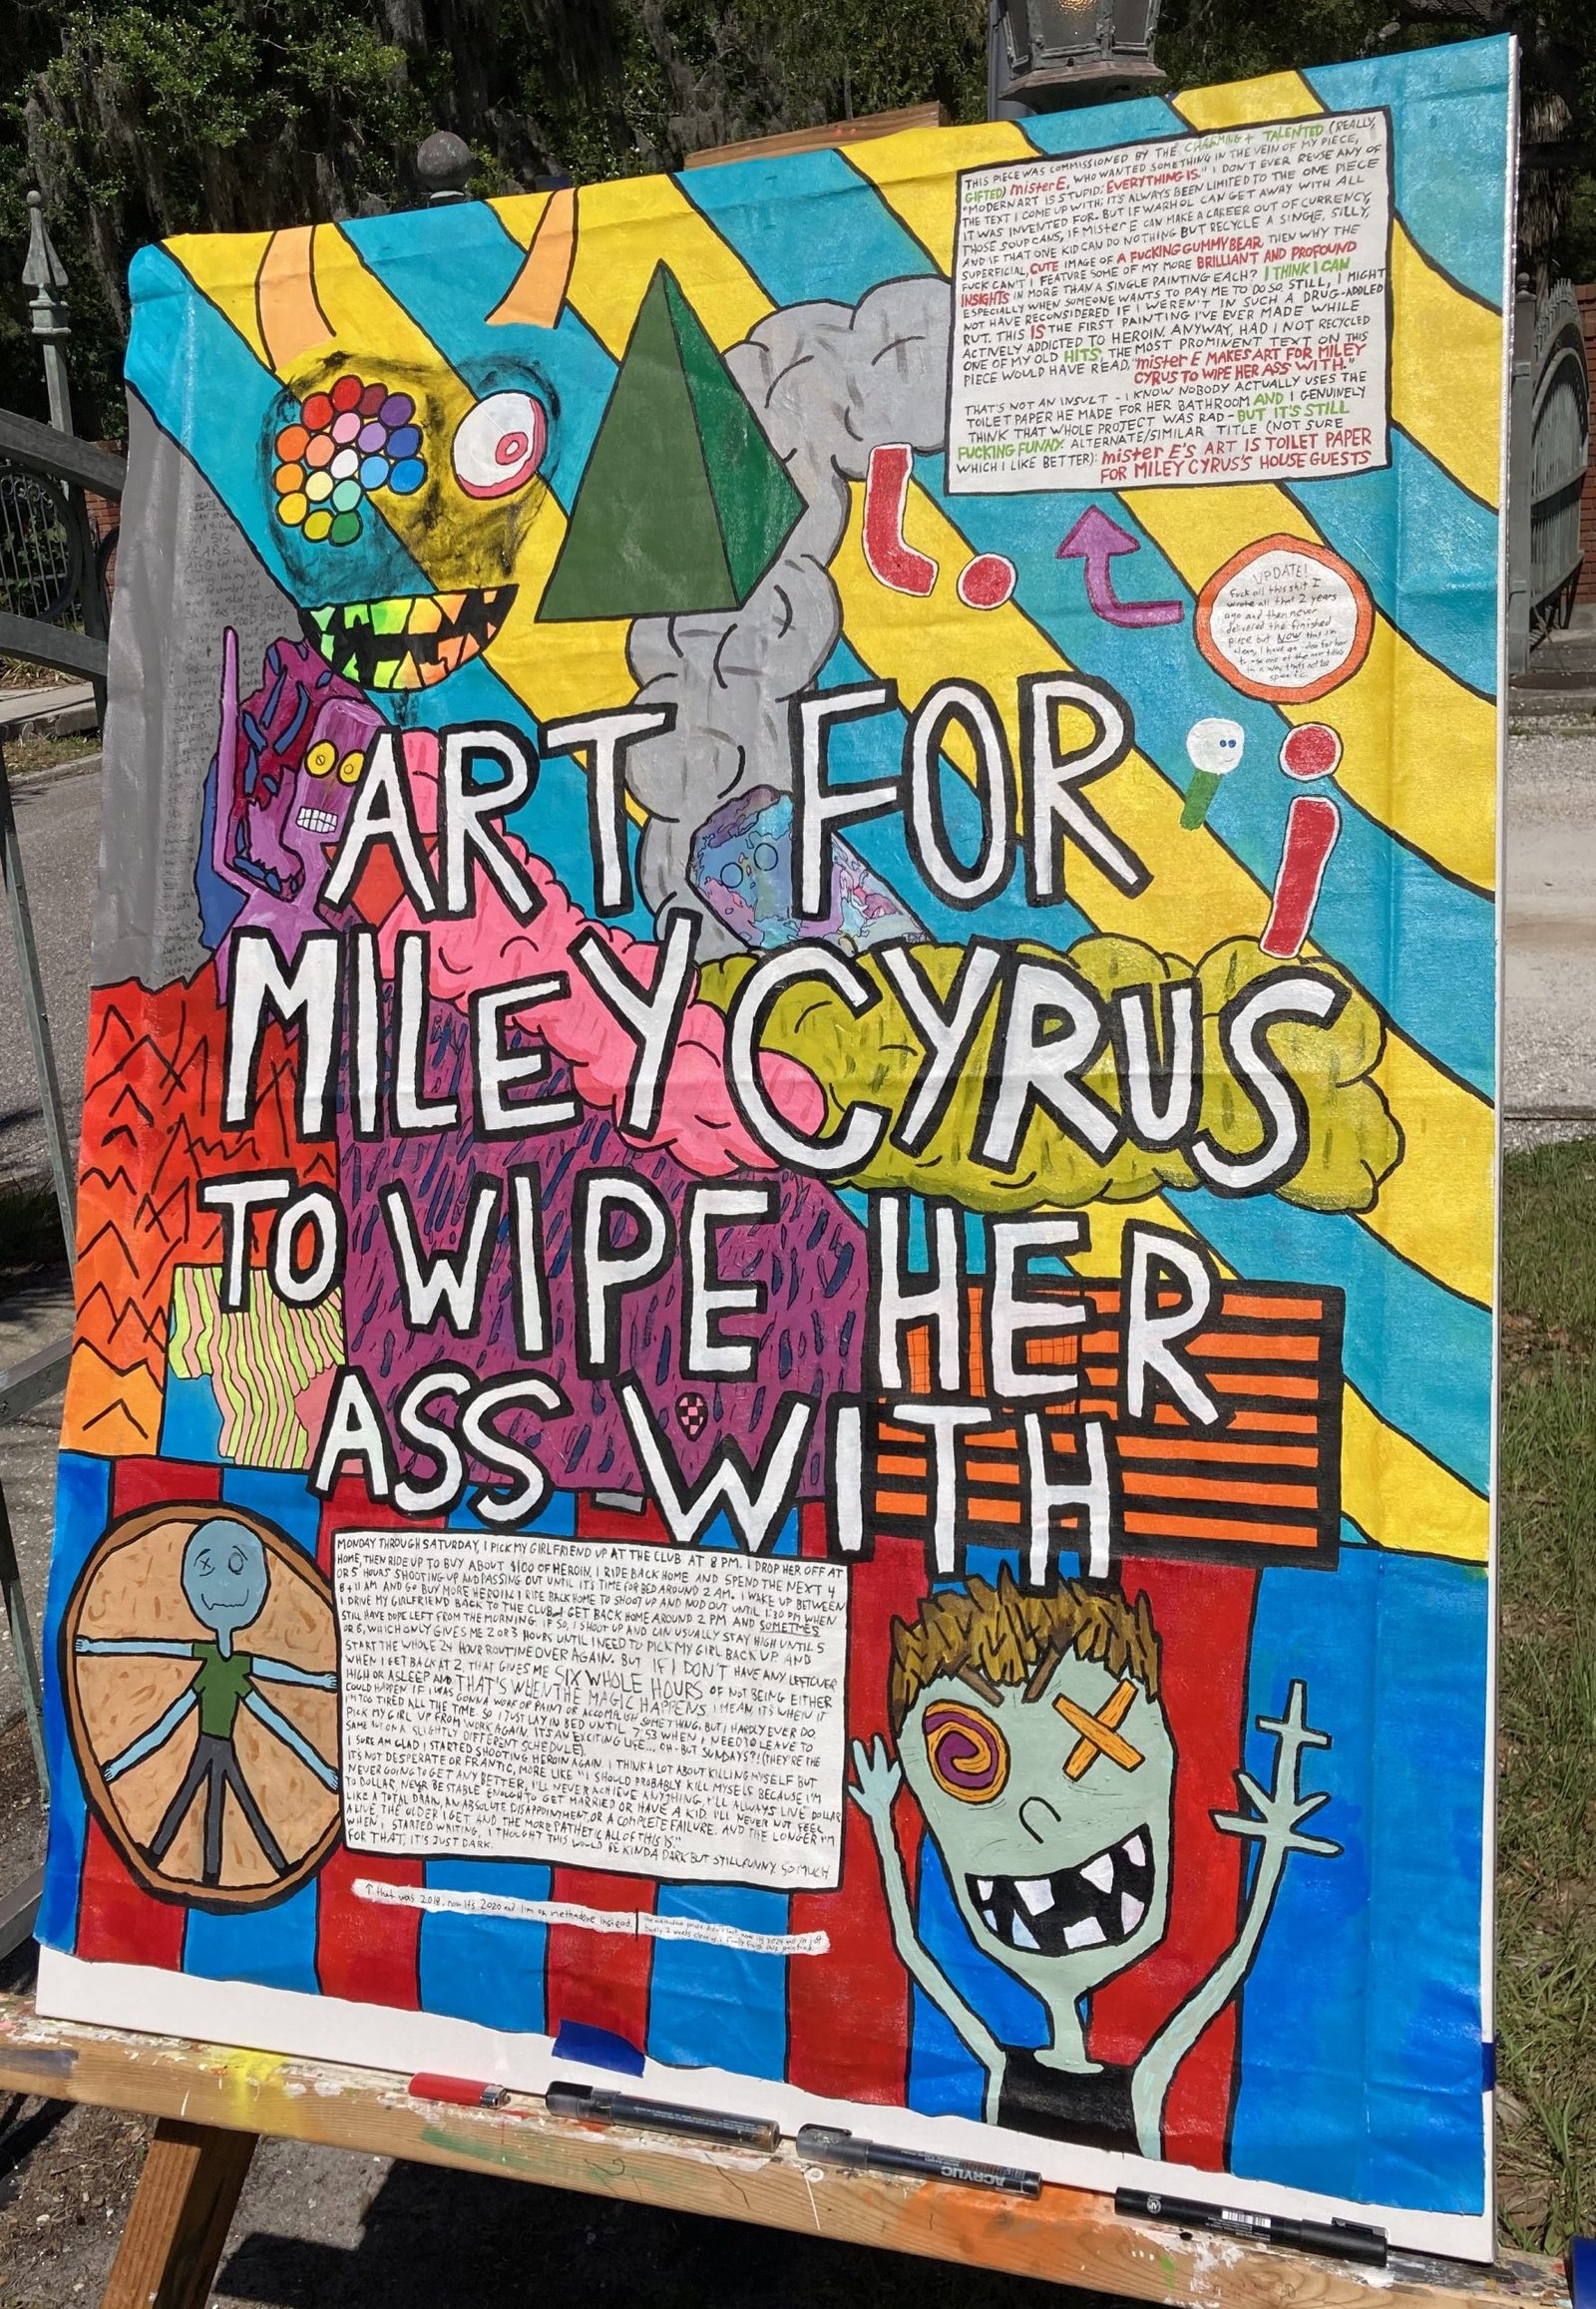 THIS PIECE WAS COMMISSIONED BY THE CHARMING + TALENTED (REALLY,
GIFTED) mister E, WHO WANTED SOMETHING IN THE VEIN OF MY PIECE,
"MODERN ART IS STUPID; EVERYTHING IS." I DON'T EVER REUSE ANY OF
THE TEXT I COME UP WITH; IT'S ALWAYS BEEN LIMITED TO THE ONE PIECE
IT WAS INVENTED FOR. BUT IF WARHOL CAN GET AWAY WITH ALL
THOSE SOUP CANS, IF Mister E CAN MAKE A CAREER OUT OF CURRENCY,
AND IF THAT ONE KID CAN DO NOTHING BUT RECYCLE A SINGLE, SILLY,
SUPERFICIAL, CUTE IMAGE OF A FUCKING GUMMY BEAR, THEN WHY THE
FUCK CAN'T I FEATURE SOME OF MY MORE BRILLIANT AND PROFOUND
INSIGHTS IN MORE THAN A SINGLE PAINTING EACH? I THINK I CAN
ESPECIALLY WHEN SOMEONE WANTS TO PAY ME TO DO SO. STILL, I MIGHT
NOT HAVE RECONSIDERED IF I WEREN'T IN SUCH A DRUG-ADDLED
RUT. THIS IS THE FIRST PAINTING I'VE EVER MADE WHILE
ACTIVELY ADDICTED TO HEROIN. ANYWAY, HAD I NOT RECYCLED
ONE OF MY OLD HITS, THE MOST PROMINENT TEXT ON THIS
PIECE WOULD HAVE READ, "mister E MAKES ART FOR MILEY
CYRUS TO WIPE HER ASS WITH."
THAT'S NOT AN INSULT - I KNOW NOBODY ACTUALLY USES THE
TOILET PAPER HE MADE FOR HER BATHROOM AND I GENUINELY
THINK THAT WHOLE PROJECT WAS RAD - BUT IT'S STILL
FUCKING FUNNY. ALTERNATE/SIMILAR TITLE (NOT SURE
WHICH I LIKE BETTER): mister E'S ART IS TOILET PAPER
FOR MILEY CYRUS'S HOUSE GUESTS
UPDATE!
Fuck all this shit. I
wrote all that 2 years
ago and then never
delivered the finished
piece but NOW that I'm
clean, I have an idea for how
to use one of the new titles
in a way that's not too
specific.
ART FOR
MILEY CYRUS
TO WIPE HER
ASS WITH
MONDAY THROUGH SATURDAY, I PICK MY GIRLFRIEND UP AT THE CLUB AT 8 PM. I DROP HER OFF AT
HOME, THEN RIDE UP TO BUY ABOUT $100 OF HEROIN. I RIDE BACK HOME AND SPEND THE NEXT 4
OR 5 HOURS SHOOTING UP AND PASSING OUT UNTIL IT'S TIME FOR BED AROUND 2 AM. I WAKE UP BETWEEN
8 + 11 AM AND GO BUY MORE HEROIN. I RIDE BACK HOME TO SHOOT UP AND NOD OUT UNTIL 1:30 PM WHEN
I DRIVE MY GIRLFRIEND BACK TO THE CLUB. I GET BACK HOME AROUND 2 PM AND SOMETIMES
STILL HAVE DOPE LEFT FROM THE MORNING. IF SO, I SHOOT UP AND CAN USUALLY STAY HIGH UNTIL 5
OR 6, WHICH ONLY GIVES ME 2 OR 3 HOURS UNTIL I NEED TO PICK MY GIRL BACK UP AND
START THE WHOLE 24 HOUR ROUTINE OVER AGAIN. BUT IF I DON'T HAVE ANY LEFTOVER
WHEN I GET BACK AT 2, THAT GIVES ME SIX WHOLE HOURS OF NOT BEING EITHER
HIGH OR ASLEEP AND THAT'S WHEN THE MAGIC HAPPENS. I MEAN, IT'S WHEN IT
COULD HAPPEN IF I WAS GONNA WORK OR PAINT OR ACCOMPLISH SOMETHING, BUT I HARDLY EVER DO.
I'M TOO TIRED ALL THE TIME. SO I JUST LAY IN BED UNTIL 7:53 WHEN I NEED TO LEAVE TO
PICK MY GIRL UP FROM WORK AGAIN. IT'S AN EXCITING LIFE... OH - BUT SUNDAYS?! (THEY'RE THE
SAME BUT ON A SLIGHTLY DIFFERENT SCHEDULE).
I SURE AM GLAD I STARTED SHOOTING HEROIN AGAIN. I THINK A LOT ABOUT KILLING MYSELF BUT
IT'S NOT DESPERATE OR FRANTIC, MORE LIKE "I SHOULD PROBABLY KILL MYSELF BECAUSE I'M
NEVER GOING TO GET ANY BETTER, I'LL NEVER ACHIEVE ANYTHING, I'LL ALWAYS LIVE DOLLAR
TO DOLLAR, NEVER BE STABLE ENOUGH TO GET MARRIED OR HAVE A KID. I'LL NEVER NOT FEEL
LIKE A TOTAL DRAIN, AN ABSOLUTE DISAPPOINTMENT, OR A COMPLETE FAILURE. AND THE LONGER I'M
ALIVE, THE OLDER I GET AND THE MORE PATHETIC ALL OF THIS IS."
WHEN I STARTED WRITING, I THOUGHT THIS WOULD BE KINDA DARK BUT STILL FUNNY. SO MUCH
FOR THAT, IT'S JUST DARK.
↑ that was 2018, now it's 2020 and I'm on methadone instead.
ACRYLIC